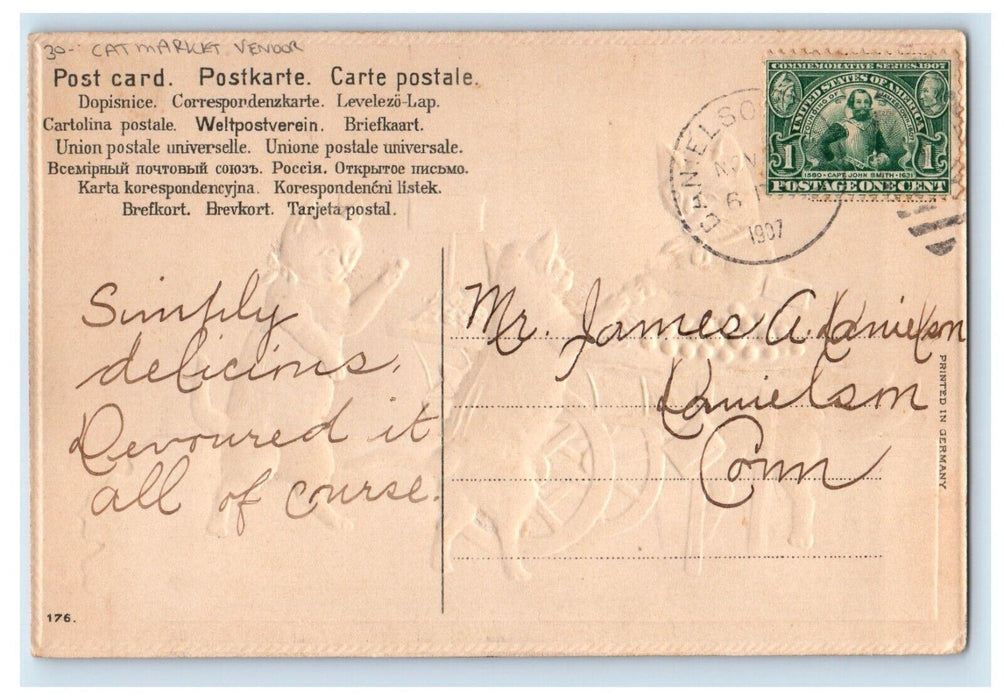 30- CAT MARKET VENDOR
Post card. Postkarte. Carte postale.
Dopisnice. Correspondenzkarte. Levelező-Lap.
Cartolina postale. Weltpostverein. Briefkaart.
Union postale universelle. Unione postale universale.
Всемірный почтовый союзъ. Россія. Открытое письмо.
Karta korespondencyjna. Korespondenční listek.
Brefkort. Brevkort. Tarjeta postal.
COMMEMORATIVE SERIES 1907
UNITED STATES OF AMERICA
1580 · CAPT. JOHN SMITH · 1631
1 1
POSTAGE ONE CENT
NOV
6
1907
Simply
delicious.
Devoured it
all of course.
Mr. James A. Danielson
Danielson
Conn
PRINTED IN GERMANY
176.